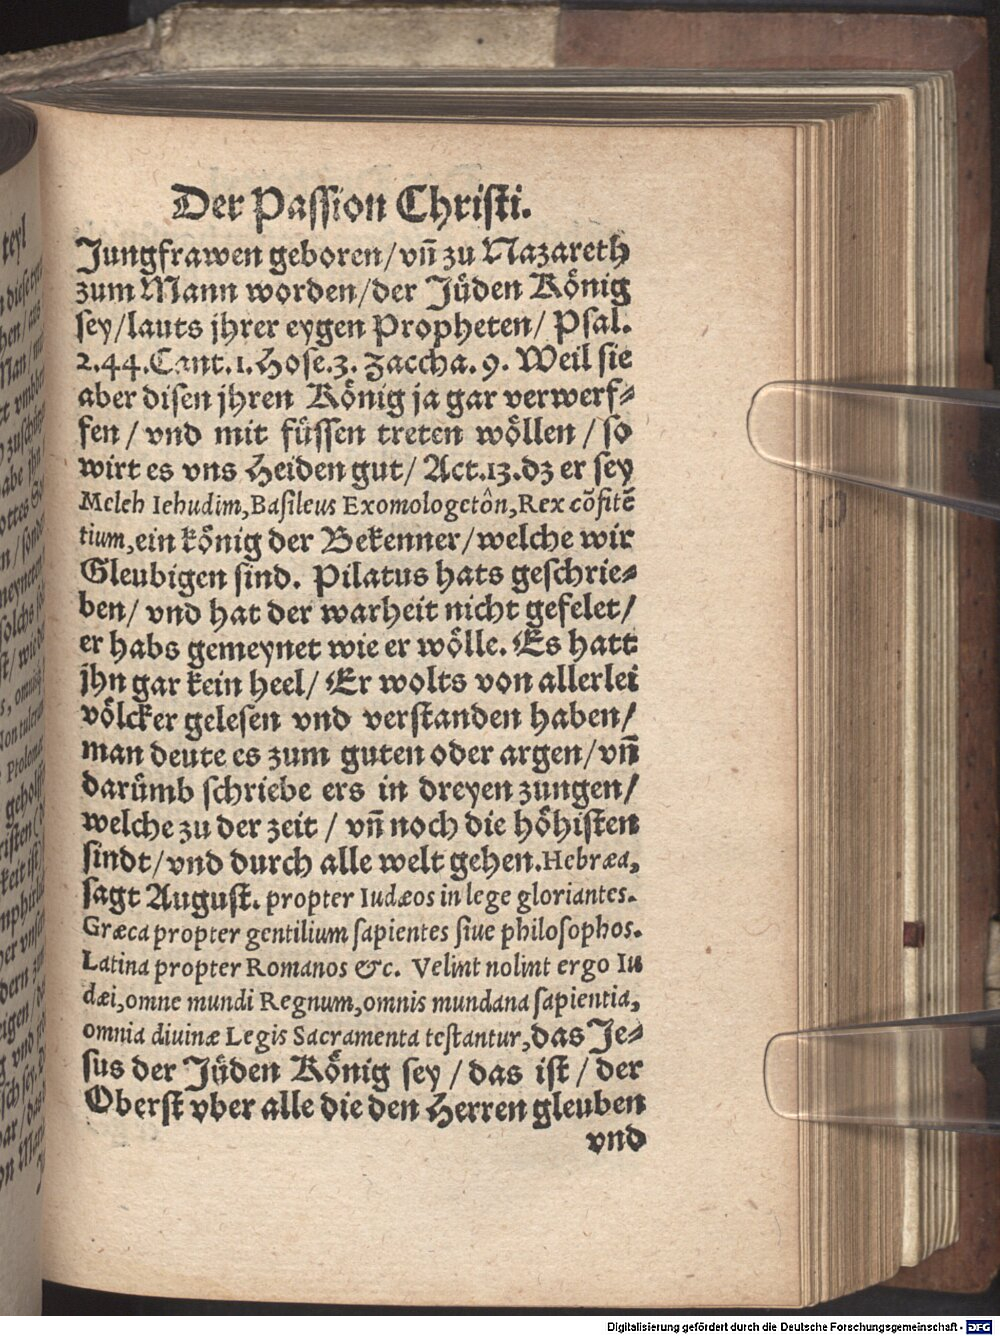 Der Passion Christi.
Jungfrawen geboren/vñ zu Nazareth
zum Mann worden/der Jüden König
sey/lauts jhrer eygen Propheten/ Psal.
2.44.Cant.1.Hose.3. Zaccha.9. Weil sie
aber disen jhren König ja gar verwerf⸗
fen / vnd mit füssen treten wöllen / so
wirt es vns Heiden gut/ Act.13.dz er sey
Meleh Iehudim, Basileus Exomologetôn, Rex cõfitẽ
tium,ein könig der Bekenner/welche wir
Gleubigen sind. Pilatus hats geschrie⸗
ben/ vnd hat der warheit nicht gefelet/
er habs gemeynet wie er wölle. Es hatt
jhn gar kein heel/ Er wolts von allerlei
völcker gelesen vnd verstanden haben/
man deute es zum guten oder argen/vñ
darümb schriebe ers in dreyen zungen/
welche zu der zeit / vñ noch die höhisten
sindt/vnd durch alle welt gehen.Hebræa,
sagt August. propter Iudæos in lege gloriantes.
Græca propter gentilium sapientes siue philosophos.
Latina propter Romanos &c. Velint nolint ergo Iu
dæi,omne mundi Regnum,omnis mundana sapientia,
omnia diuinæ Legis Sacramenta testantur,das Je⸗
sus der Jüden König sey / das ist / der
Oberst vber alle die den Herren gleuben
vnd
teyl
Digitalisierung gefördert durch die Deutsche Forschungsgemeinschaft - DFG